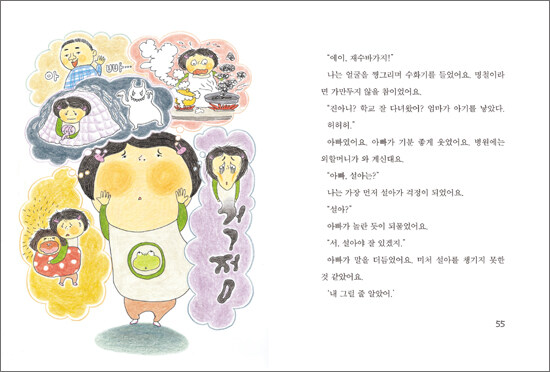 아
빠....
걱정
"에이, 재수바가지!"
나는 얼굴을 찡그리며 수화기를 들었어요. 명철이라
면 가만두지 않을 참이었어요.
"진아니? 학교 잘 다녀왔어? 엄마가 아기를 낳았다.
허허허."
아빠였어요. 아빠가 기분 좋게 웃었어요. 병원에는
외할머니가 와 계신대요.
"아빠, 설아는?"
나는 가장 먼저 설아가 걱정이 되었어요.
"설아?"
아빠가 놀란 듯이 되물었어요.
"서, 설아야 잘 있겠지."
아빠가 말을 더듬었어요. 미처 설아를 챙기지 못한
것 같았어요.
'내 그럴 줄 알았어.'
55